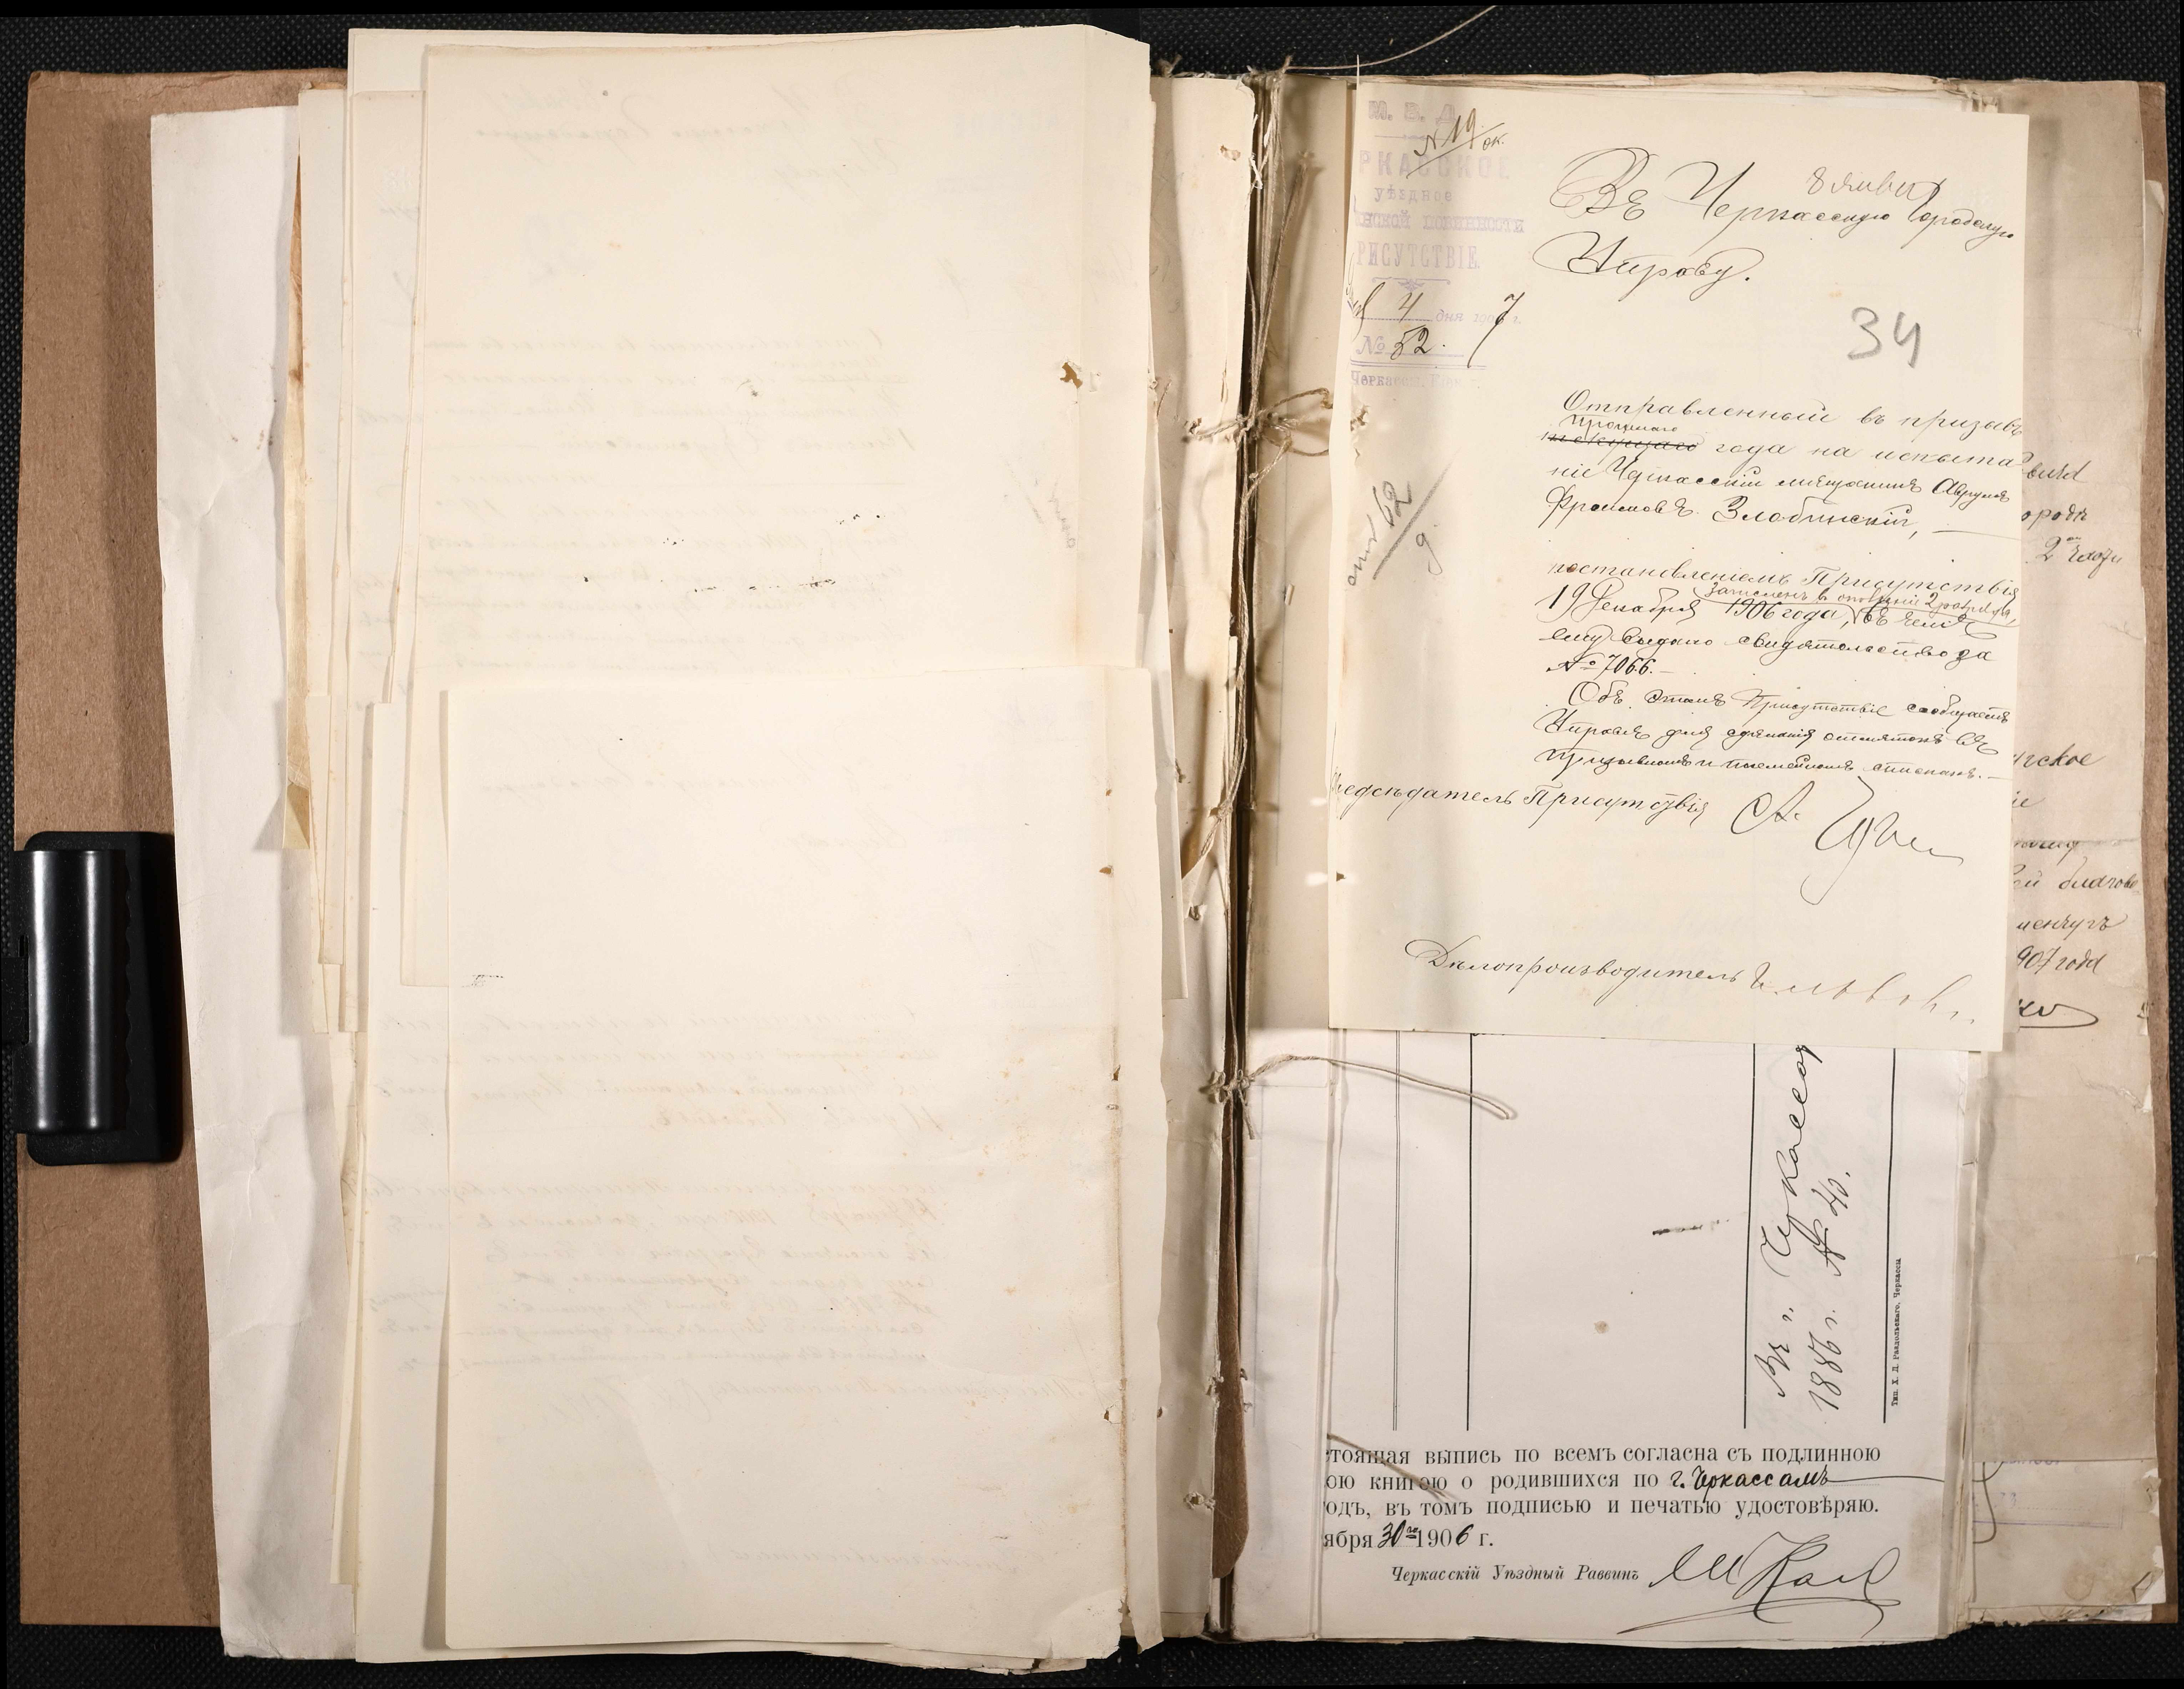 М. В. Д.
№ 19
РКАССКОЕ
уѣздное
НСКОЙ ПОВИННОСТИ
РИСУТСТВІЕ
4 дня 1907 г.
№ 52.
Черкассы, Кіев. г.
8 Января
Въ Черкасскую Городскую
Управу.
34
Отправленный въ призывъ
прошлаго
текущаго года на испыта
ніе Черкасскій мѣщанинъ Аврумъ
Фроимовъ Злобинскій,
постановленіемъ Присутствія
зачисленъ въ ополченіе 2 разряда,
19 Декабря 1906 года, въ чемъ
ему выдано свидѣтельство за
№ 7066.
Объ этомъ Присутствіе сообщаетъ
Управѣ для сдѣланія отмѣтокъ въ
призывномъ и посемейномъ спискахъ.
редсѣдатель Присутствія
Дѣлопроизводитель
62
9
ородѣ
нское
ій благове
менчугъ
907 года
Въ г. Черкассах
1886 г. № 40.
Тип. Х. Д. Раядольскаго, Черкассы
стоящая выпись по всемъ согласна съ подлинною
ою книгою о родившихся по г. Черкассамъ
одъ, въ томъ подписью и печатью удостовѣряю.
ября 30го 1906 г.
Черкасскій Уѣздный Раввинъ